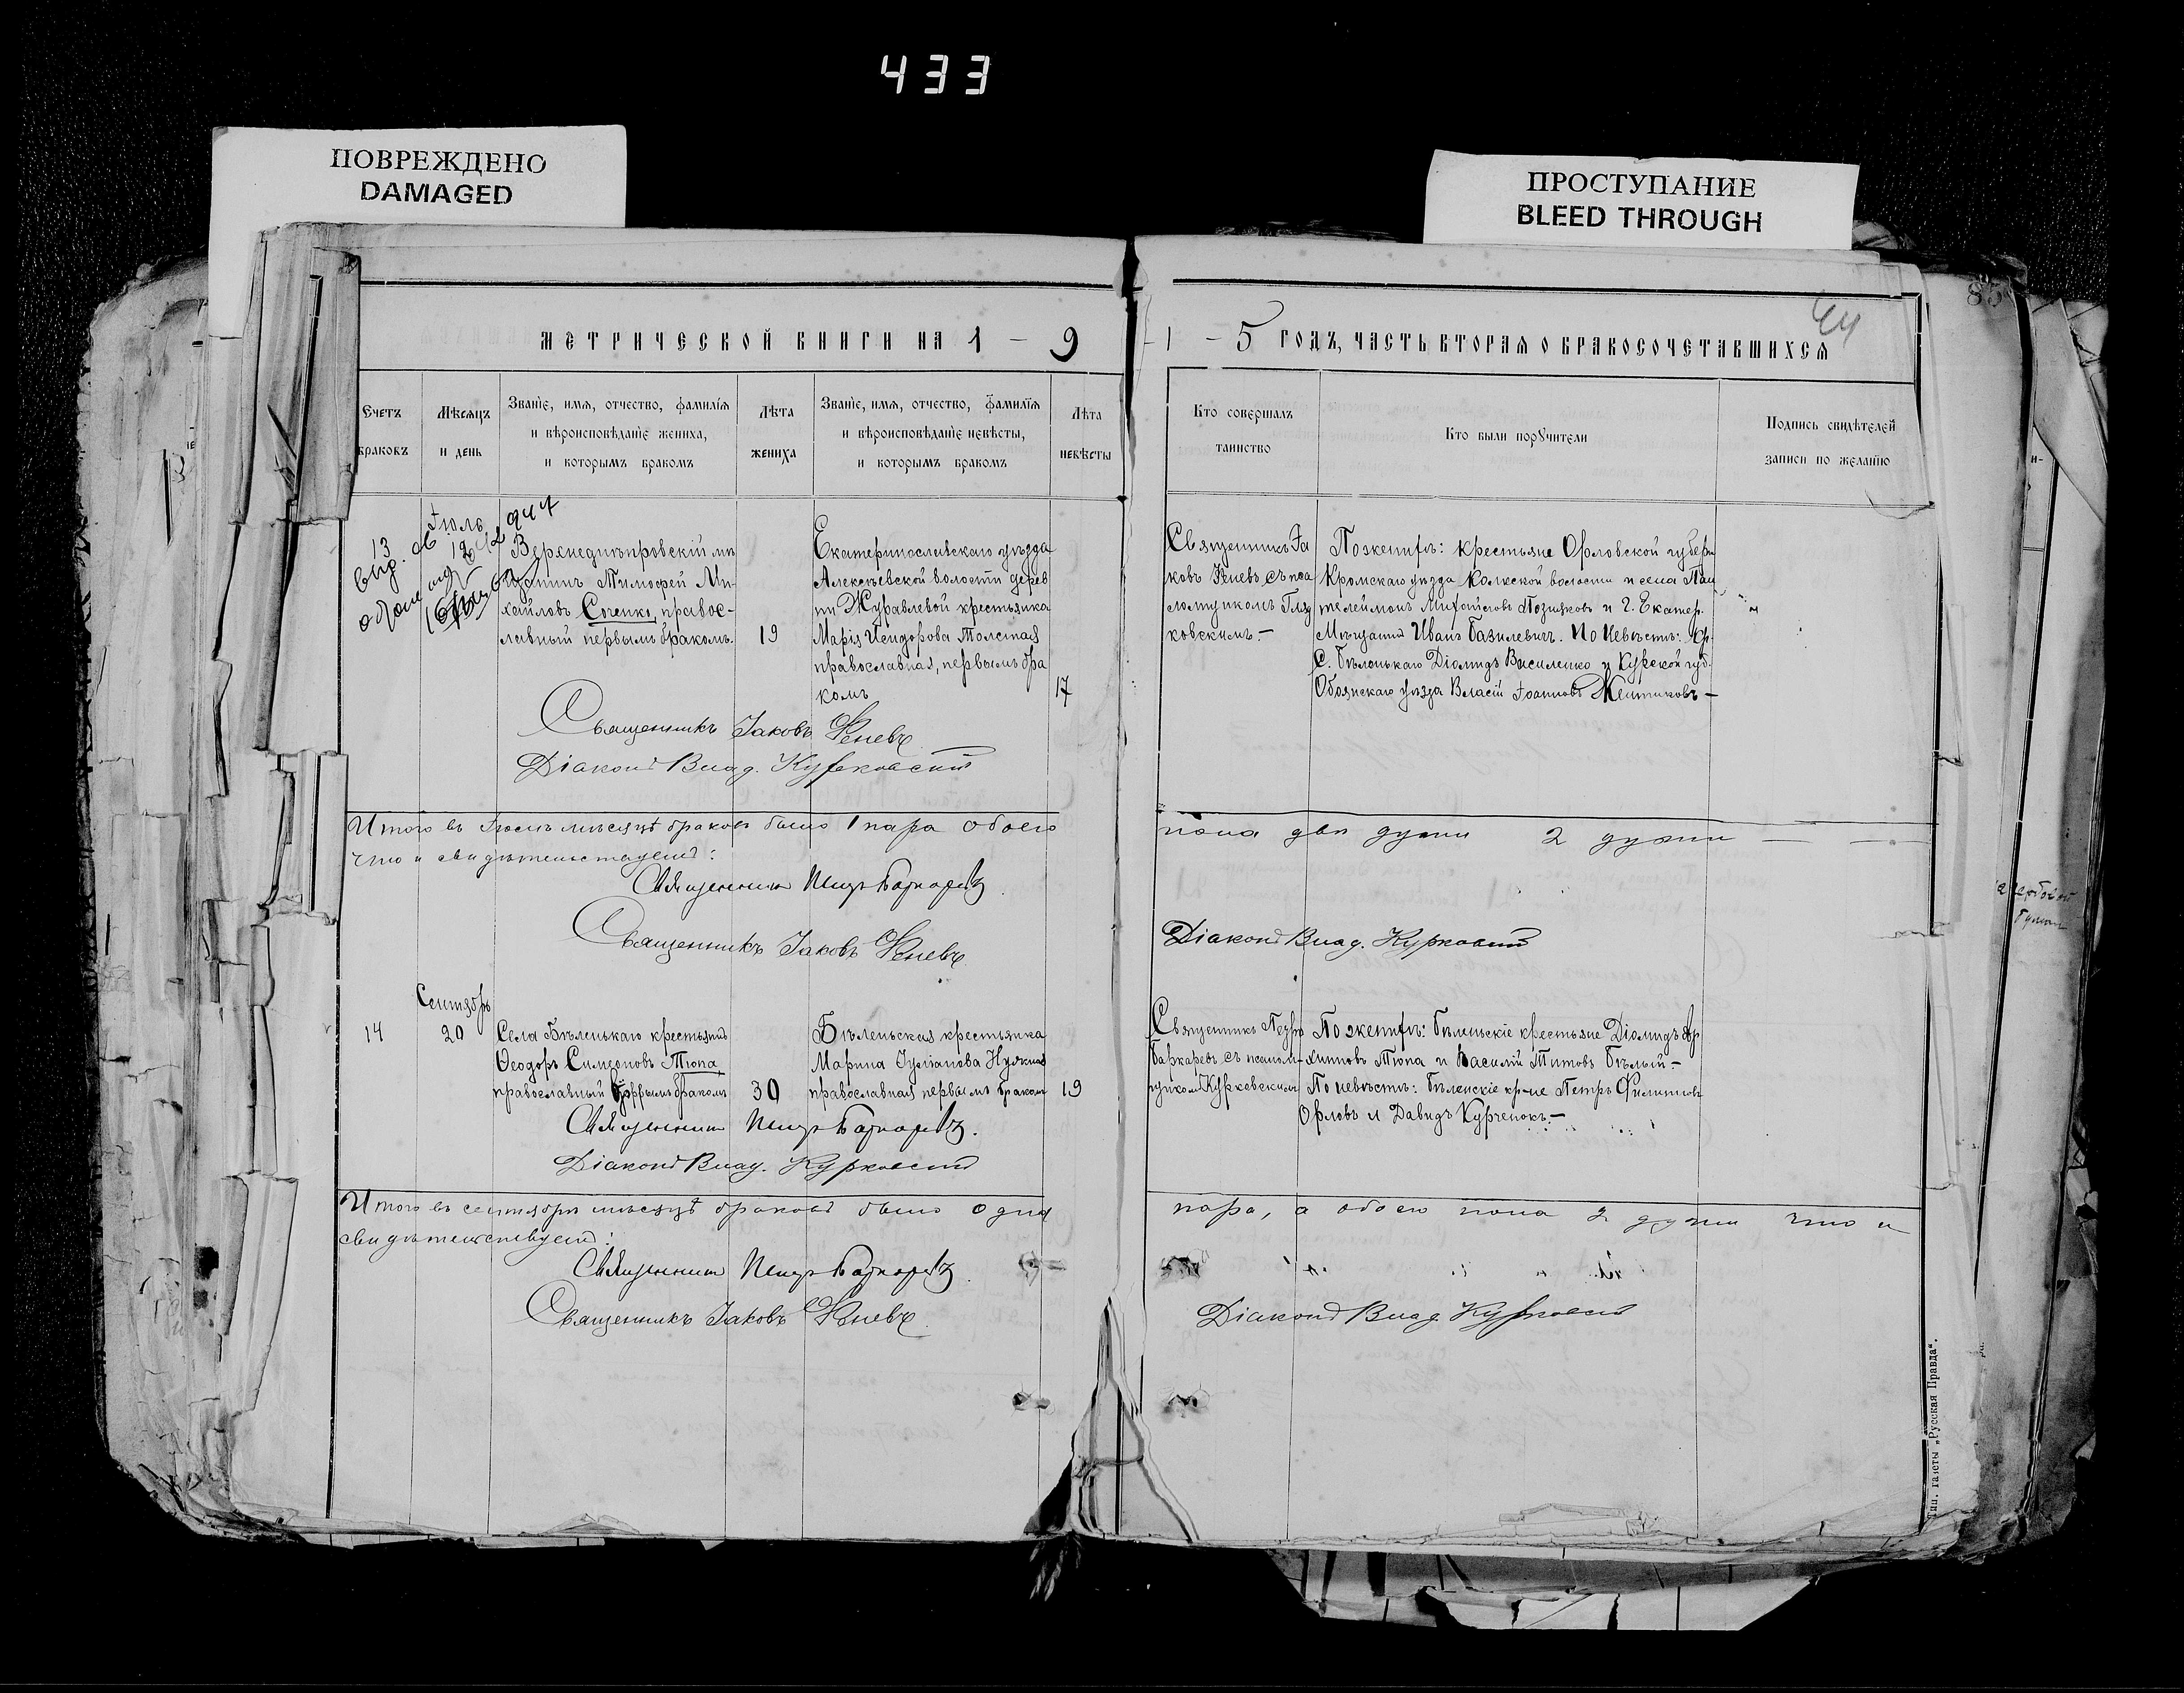 433
ПОВРЕЖДЕНО
DAMAGED
ПРОСТУПАНИЕ
BLEED THROUGH
85
44
МЕТРИЧЕСКОЙ КНИГИ НА 1 – 9
– 1 – 5 ГОДЪ, ЧАСТЬ ВТОРАЯ О БРАКОСОЧЕТАВШИХСЯ
Счетъ
браковъ
Мѣсяцъ
и день
Званіе, имя, отчество, фамилія
и вѣроисповѣданіе жениха,
и которымъ бракомъ
Лѣта
жениха
Званіе, имя, отчество, фамилія
и вѣроисповѣданіе невѣсты,
и которымъ бракомъ
Лѣта
невѣсты
Кто совершалъ
таинство
Кто были порꙋчители
Подпись свидѣтелей
записи по желанію
13
Іюль
12
Верхнеднѣпровскій мѣ
щанинъ Тимофей Ми-
хайловъ Соченко, правос-
лавный первымъ бракомъ.
19
Екатеринославскаго уѣзда
Алексѣевской волости дерев
ни Журавлевой крестьянка
Марія Исидорова Толстая
православная, первымъ бра
комъ
17
Священникъ Іа
ковъ Феневъ съ пса
ломщикомъ
ковскимъ. –
По женихѣ: крестьяне Орловской губерн
Кромскаго уѣзда волости и села Пан
телеймонъ Михайловъ и г. Екатер.
Мѣщанинъ Иванъ Базилевичъ. По невѣстѣ: кр.
С. Бѣленькаго Діомидъ Василенко и Курской губ.
Обоянскаго уѣзда Власій Іоанновъ Желтиковъ –
Священникъ Іаковъ Феневъ
Діаконъ Влад. Курковскій
Итого въ Іюлѣ мѣсяцѣ браковъ было 1 пара обоего
пола двѣ души 2 души — —
что и свидѣтельствуемъ:
Священникъ Петръ Баккаревъ
Священникъ Іаковъ Феневъ
Діаконъ Влад. Курковскій
14
Сентябрь
20
Села Бѣленькаго крестьянинъ
Ѳеодоръ Симеоновъ Тюпа
православный бракомъ
30
Бѣленьская крестьянка
Марина Іуліанова
православная первымъ бракомъ
19
Священникъ Петръ
Баккаревъ съ псалом-
щикомъ Курковскимъ
По женихѣ: Бѣленьскіе крестьяне Діомидъ Ар
хиповъ Тюпа и Василій Титовъ Бѣлый –
По невѣстѣ: Бѣленскіе кр-не Петръ Филиповъ
Орловъ и Давидъ Курченокъ. –
Священникъ Петръ Баккаревъ.
Діаконъ Влад. Курковскій
Итого въ сентябрѣ мѣсяцѣ браковъ было одна
пара, а обоего пола 2 души что и
свидѣтельствуемъ:
Священникъ Петръ Баккаревъ
Священникъ Іаковъ Феневъ
Діаконъ Влад. Курковскій
Тип. газеты „Русская Правда".